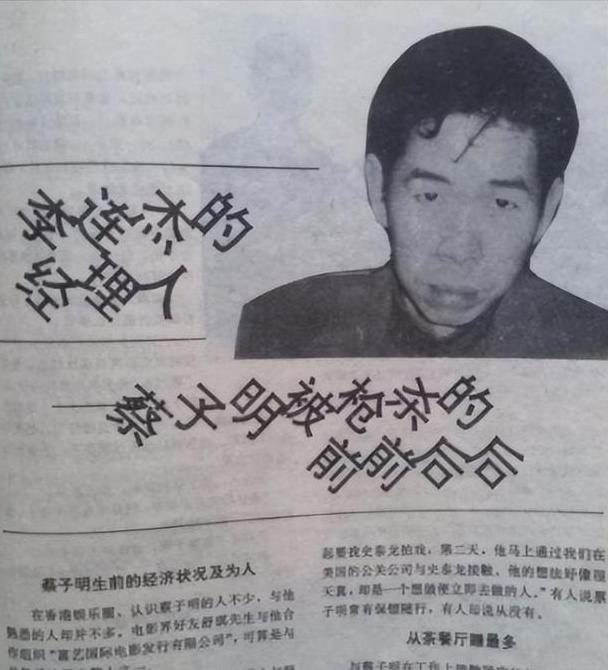 李连杰的
经理人
蔡子明被枪杀的
前前后后
蔡子明生前的经济状况及为人
在香港娱乐圈,认识蔡子明的人不少,与他
熟悉的人却并不多。电影界好友舒琪先生与他合
作组织“富艺国际电影发行有限公司”,可算是与
起要找史泰龙拍戏,第二天,他马上通过我们在
美国的公关公司与史泰龙接触,他的想法好像很
天真,却是一个想做便立即去做的人。”有人说蔡
子明常有保镖随行,有人却说从没有。
从茶餐厅赚最多